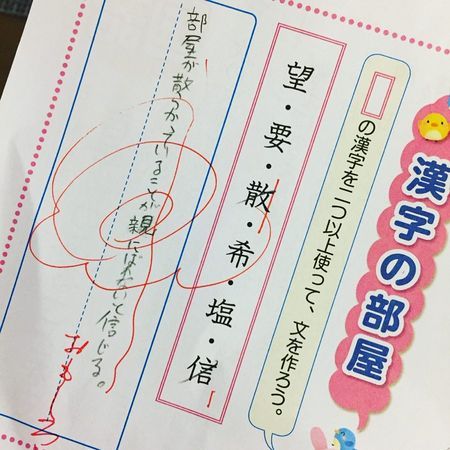 漢字の部屋
の漢字を二つ以上使って、文を作ろう。
望・要・散・希・塩・信
部屋が散らかっていることが親にばれないて信じる。
おもしろい